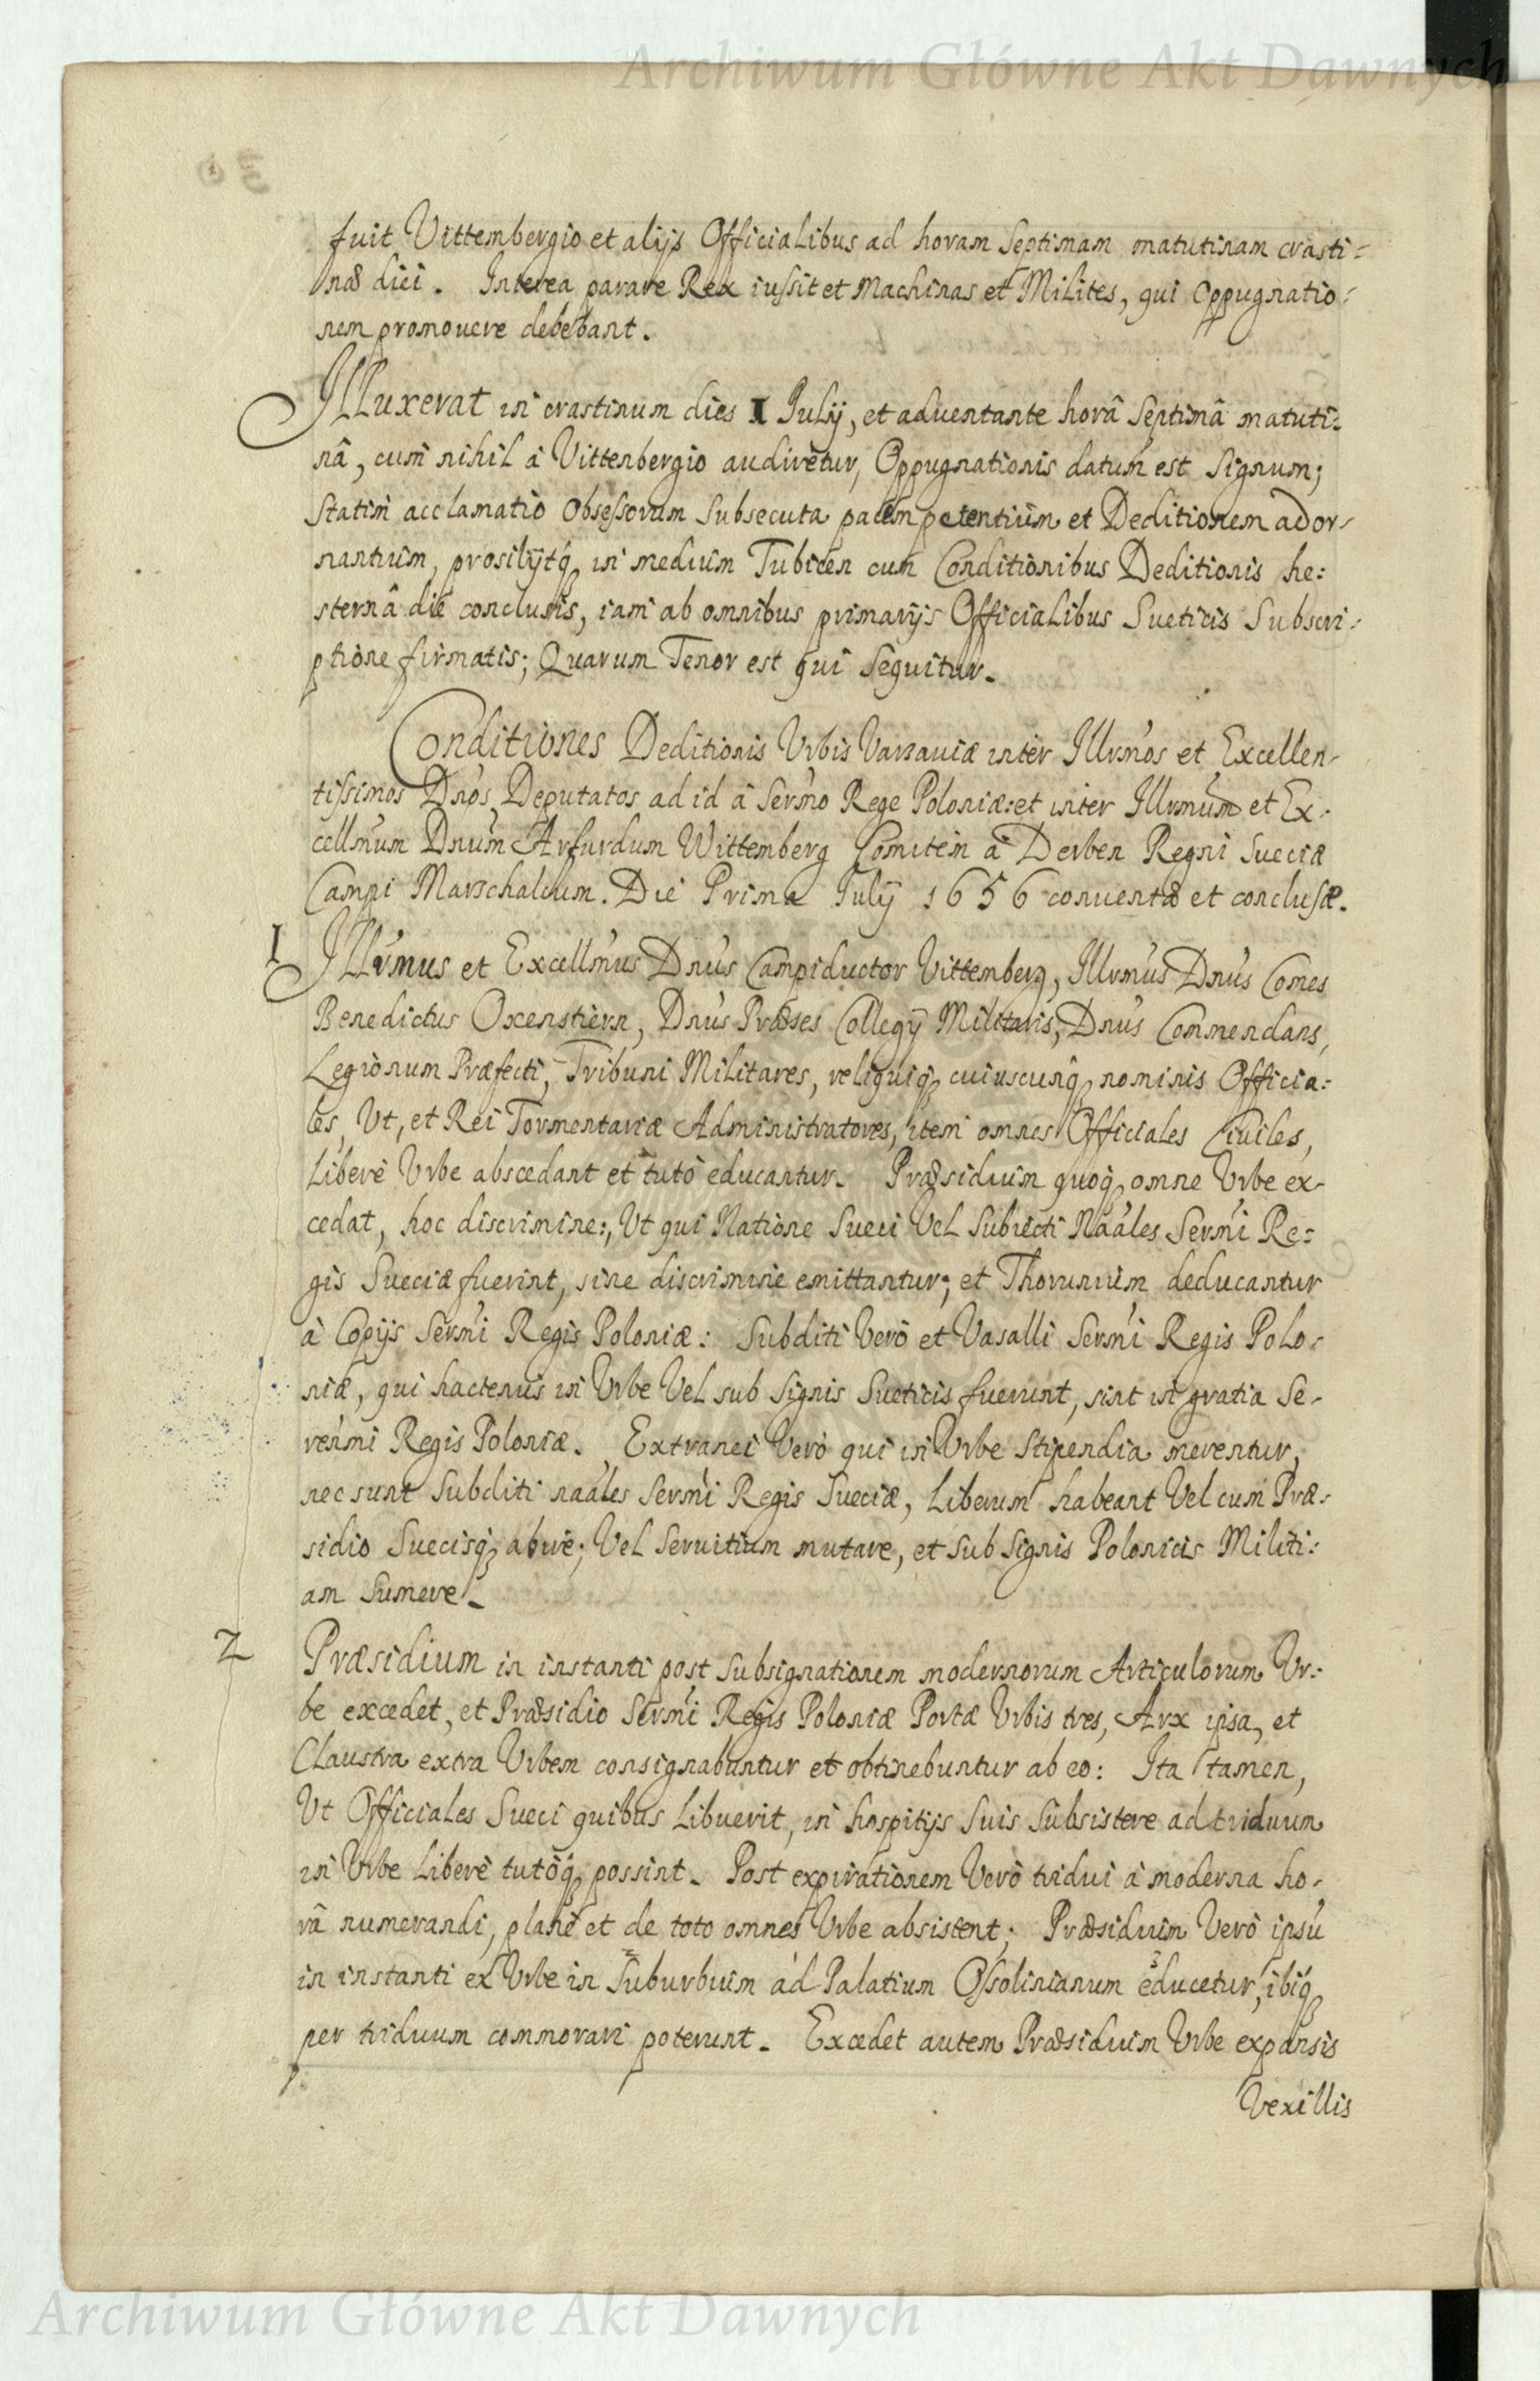 Archiwum Główne Akt Dawnych
fuit Vittembergio et alijs Officialibus ad horam septimam matutinam crasti-
næ diei. Interea parare Rex iussit et Machinas et Milites, qui Oppugnatio-
nem promouere debebant.
Illuxerat in crastinum dies I Julij, et aduentante horâ septimâ matuti-
nâ, cum nihil à Vittenbergio audiretur, Oppugnationis datum est signum;
statim acclamatio Obsessorum subsecuta pacem petentium et Deditionem ador-
nantium, prosilijtq́ in medium Tubicen cum Conditionibus Deditionis he:
sternâ die conclusis, iam ab omnibus primarijs Officialibus Sueticis Subscri-
ptione firmatis; Quarum Tenor est qui sequitur.
Conditiones Deditionis Vrbis Varsauiæ inter Illrm̃os et Excellen-
tissimos Dños Deputatos ad id à Serm̃o Rege Poloniæ: et inter Illrmum et Ex-
cellm̃um Dnum Arfurdum Wittemberg Comitem à Derben Regni Sueciæ
Campi Marschalcum. Die Prima Julij 1656 conuentæ et conclusæ.
I Illrm̃us et Excellm̃us Dnus Campiductor Vittemberg, Illrmus Dnus Comes
Benedictus Oxenstiern, Dnus Præses Collegij Militaris, Dnus Commendans,
Legionum Præfecti, Tribuni Militares, reliquiq́ cuiuscunq́ nominis Officia:
les, Vt, et Rei Tormentariæ Administratores, item omnes Officiales Ciuiles,
Liberè Vrbe abscedant et tutò educantur. Præsidium quoq́ omne Vrbe ex-
cedat, hoc discrimine:, Vt qui Natione Sueci Vel Subiecti Naãles Serm̃i Re:
gis Sueciæ fuerint, sine discrimine emittantur; et Thorunium deducantur
à Copijs Serm̃i Regis Poloniæ: Subditi Verò et Vasalli Serm̃i Regis Polo-
niæ, qui hactenus in Vrbe Vel sub signis Sueticis fuerunt, sint in gratia Se-
renm̃i Regis Poloniæ. Extranei Verò qui in Vrbe Stipendia merentur,
nec sunt Subditi naãles Serm̃i Regis Sueciæ, Liberum habeant Vel cum Præ-
sidio Suecisq́ abire; Vel Seruitium mutare, et sub signis Polonicis Militi:
am sumere.
2 Præsidium in instanti post subsignationem modernorum Articulorum Vr:
be excedet, et Præsidio Serm̃i Regis Poloniæ Portæ Vrbis tres, Arx ipsa, et
Claustra extra Vrbem consignabuntur et obtinebuntur ab eo: Ita tamen,
Vt Officiales Sueci quibus Libuerit, in hospitijs suis subsistere ad triduum
in Vrbe Liberè tutòq́ possint. Post expirationem Verò tridui à moderna ho-
râ numerandi, planè et de toto omnes Vrbe absistent; Præsidium Verò ipsũ
in instanti ex Vrbe in Suburbium ad Palatium Ossolinianum educetur, ibiq́
per triduum commorari poterunt. Excedet autem Præsidium Vrbe expansis
Vexillis
Archiwum Główne Akt Dawnych